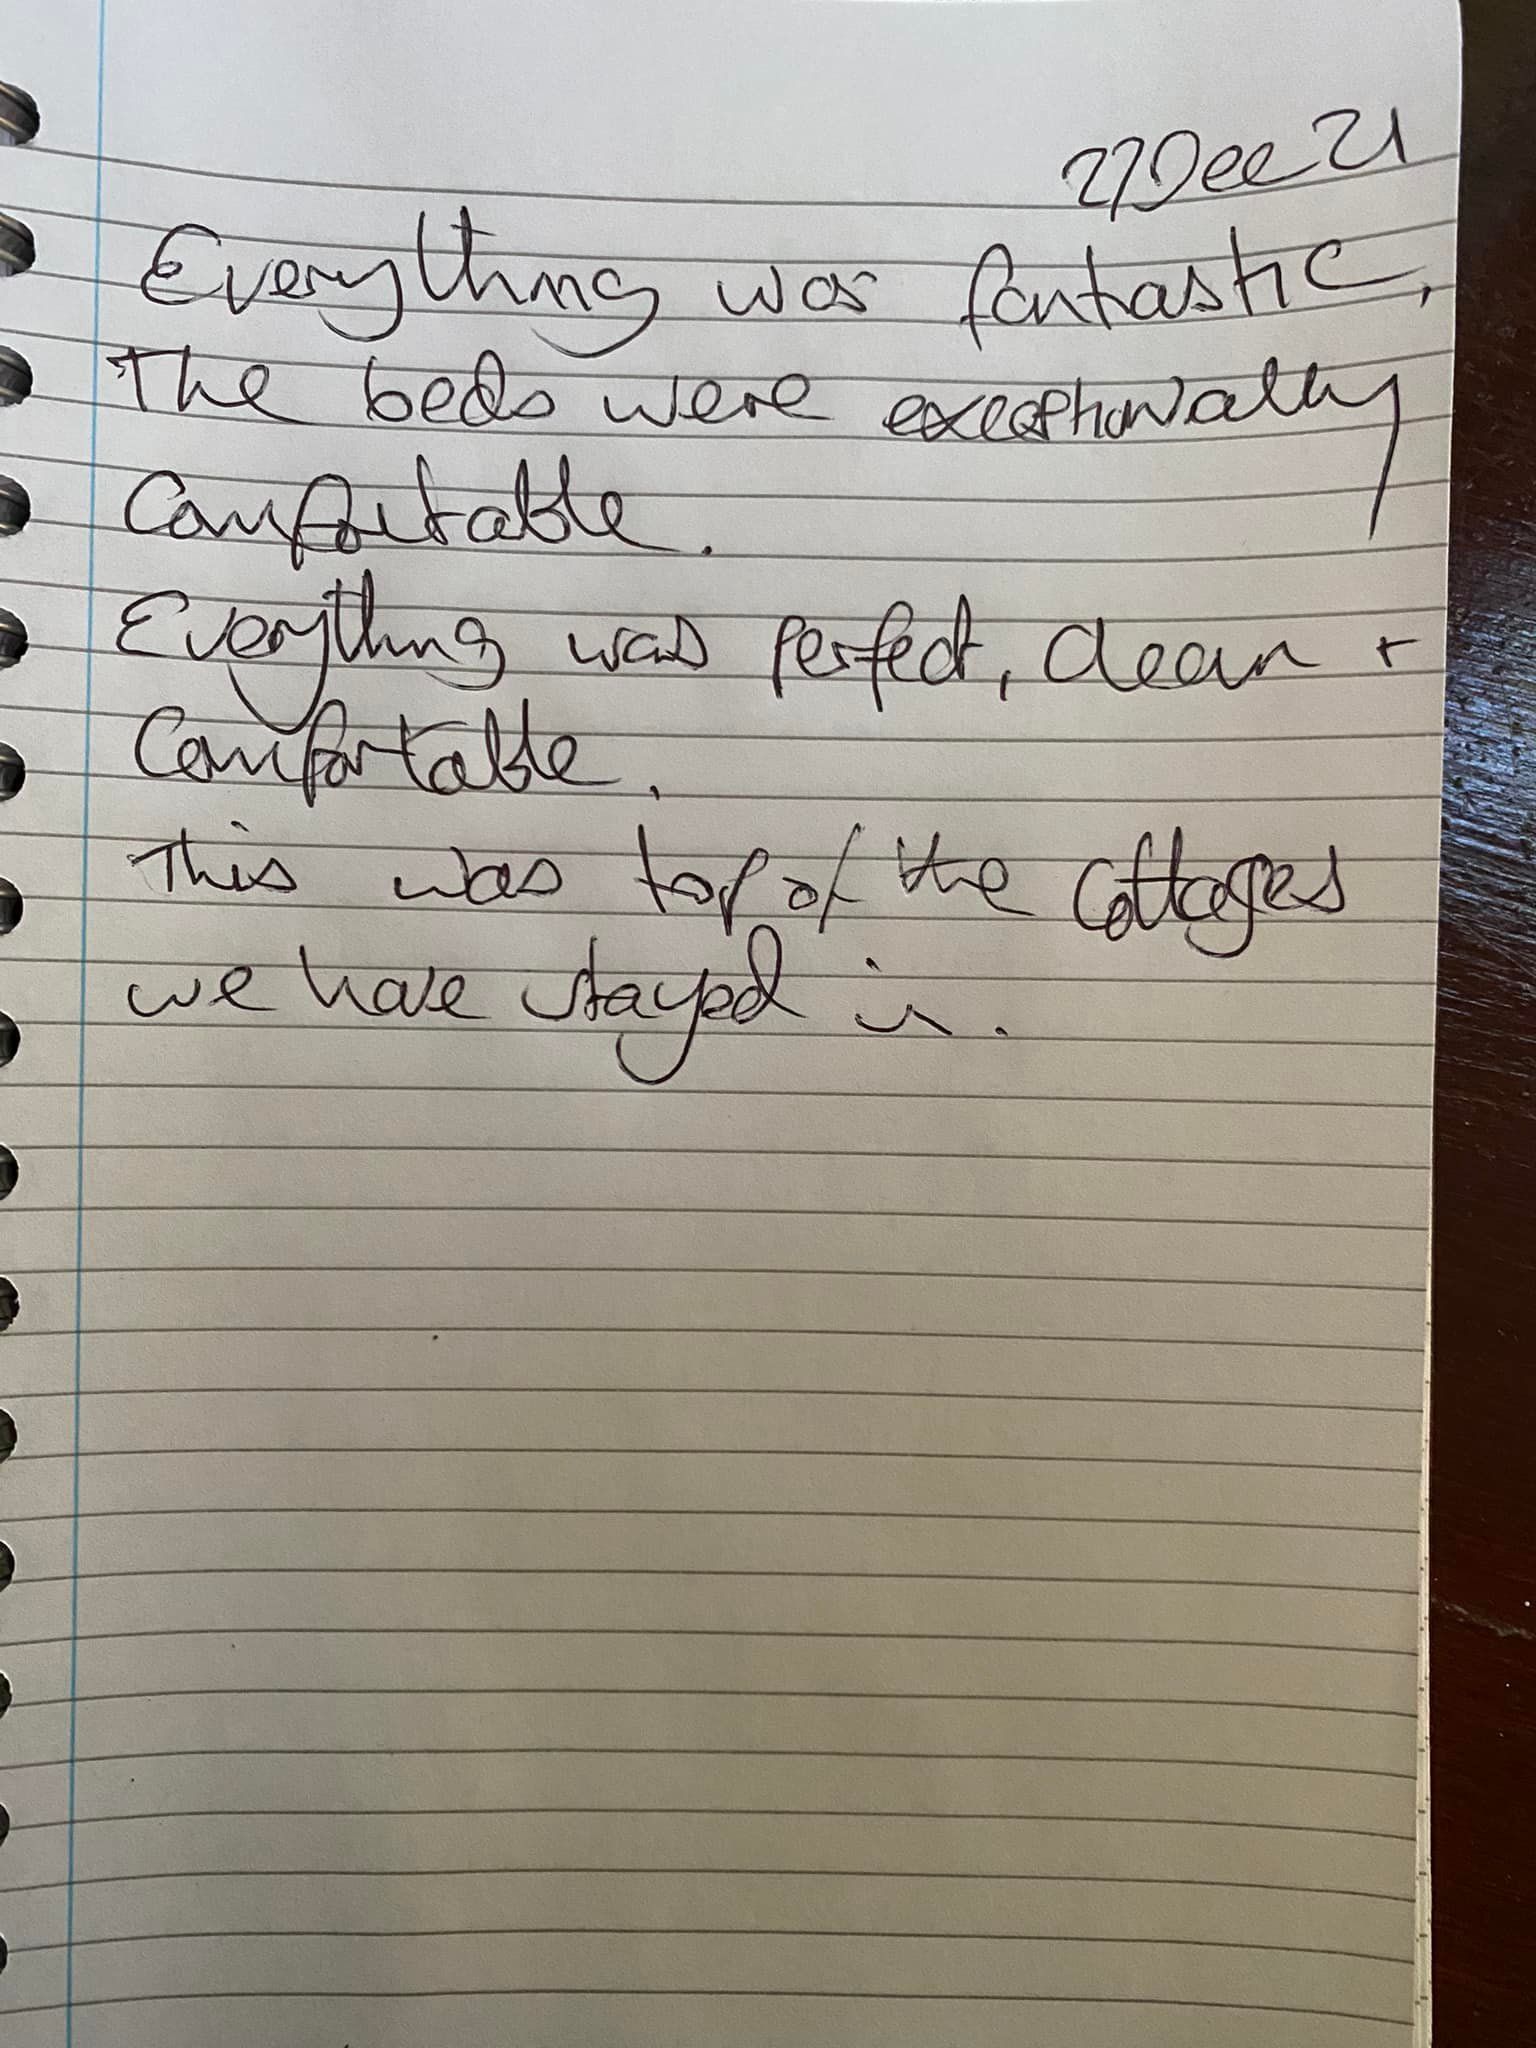 27 Dec 21
Everything was fantastic,
The beds were exceptionally
Comfortable.
Everything was perfect, clean +
Comfortable.
This was top of the cottages
we have stayed in.